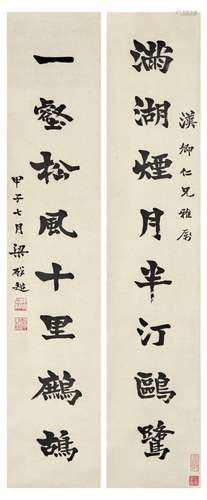 漢卿仁兄雅屬
滿湖煙月半汀鷗鷺
一壑松風十里鷓鴣
甲子七月梁啟超